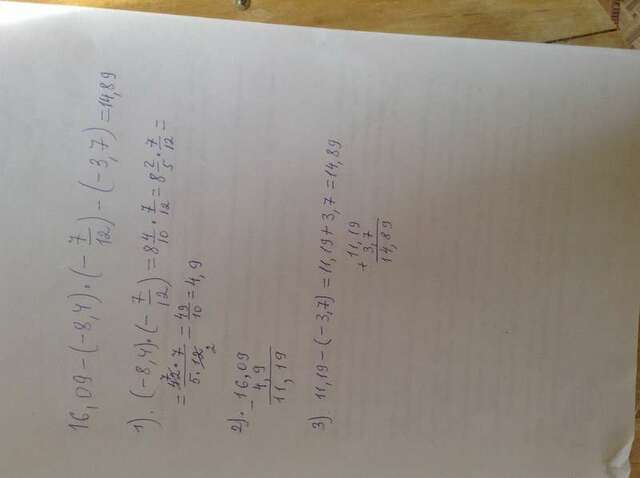 16,09-(-8,4)·(-7/12)-(-3,7)=14,89
1). (-8,4)·(-7/12)=8 4/10·7/12=8 2/5·7/12=
=42·7/5·12=49/10=4,9
7
2
2). -16,09
4,9
11,19
3) 11,19-(-3,7)=11,19+3,7=14,89
+11,19
3,7
14,89